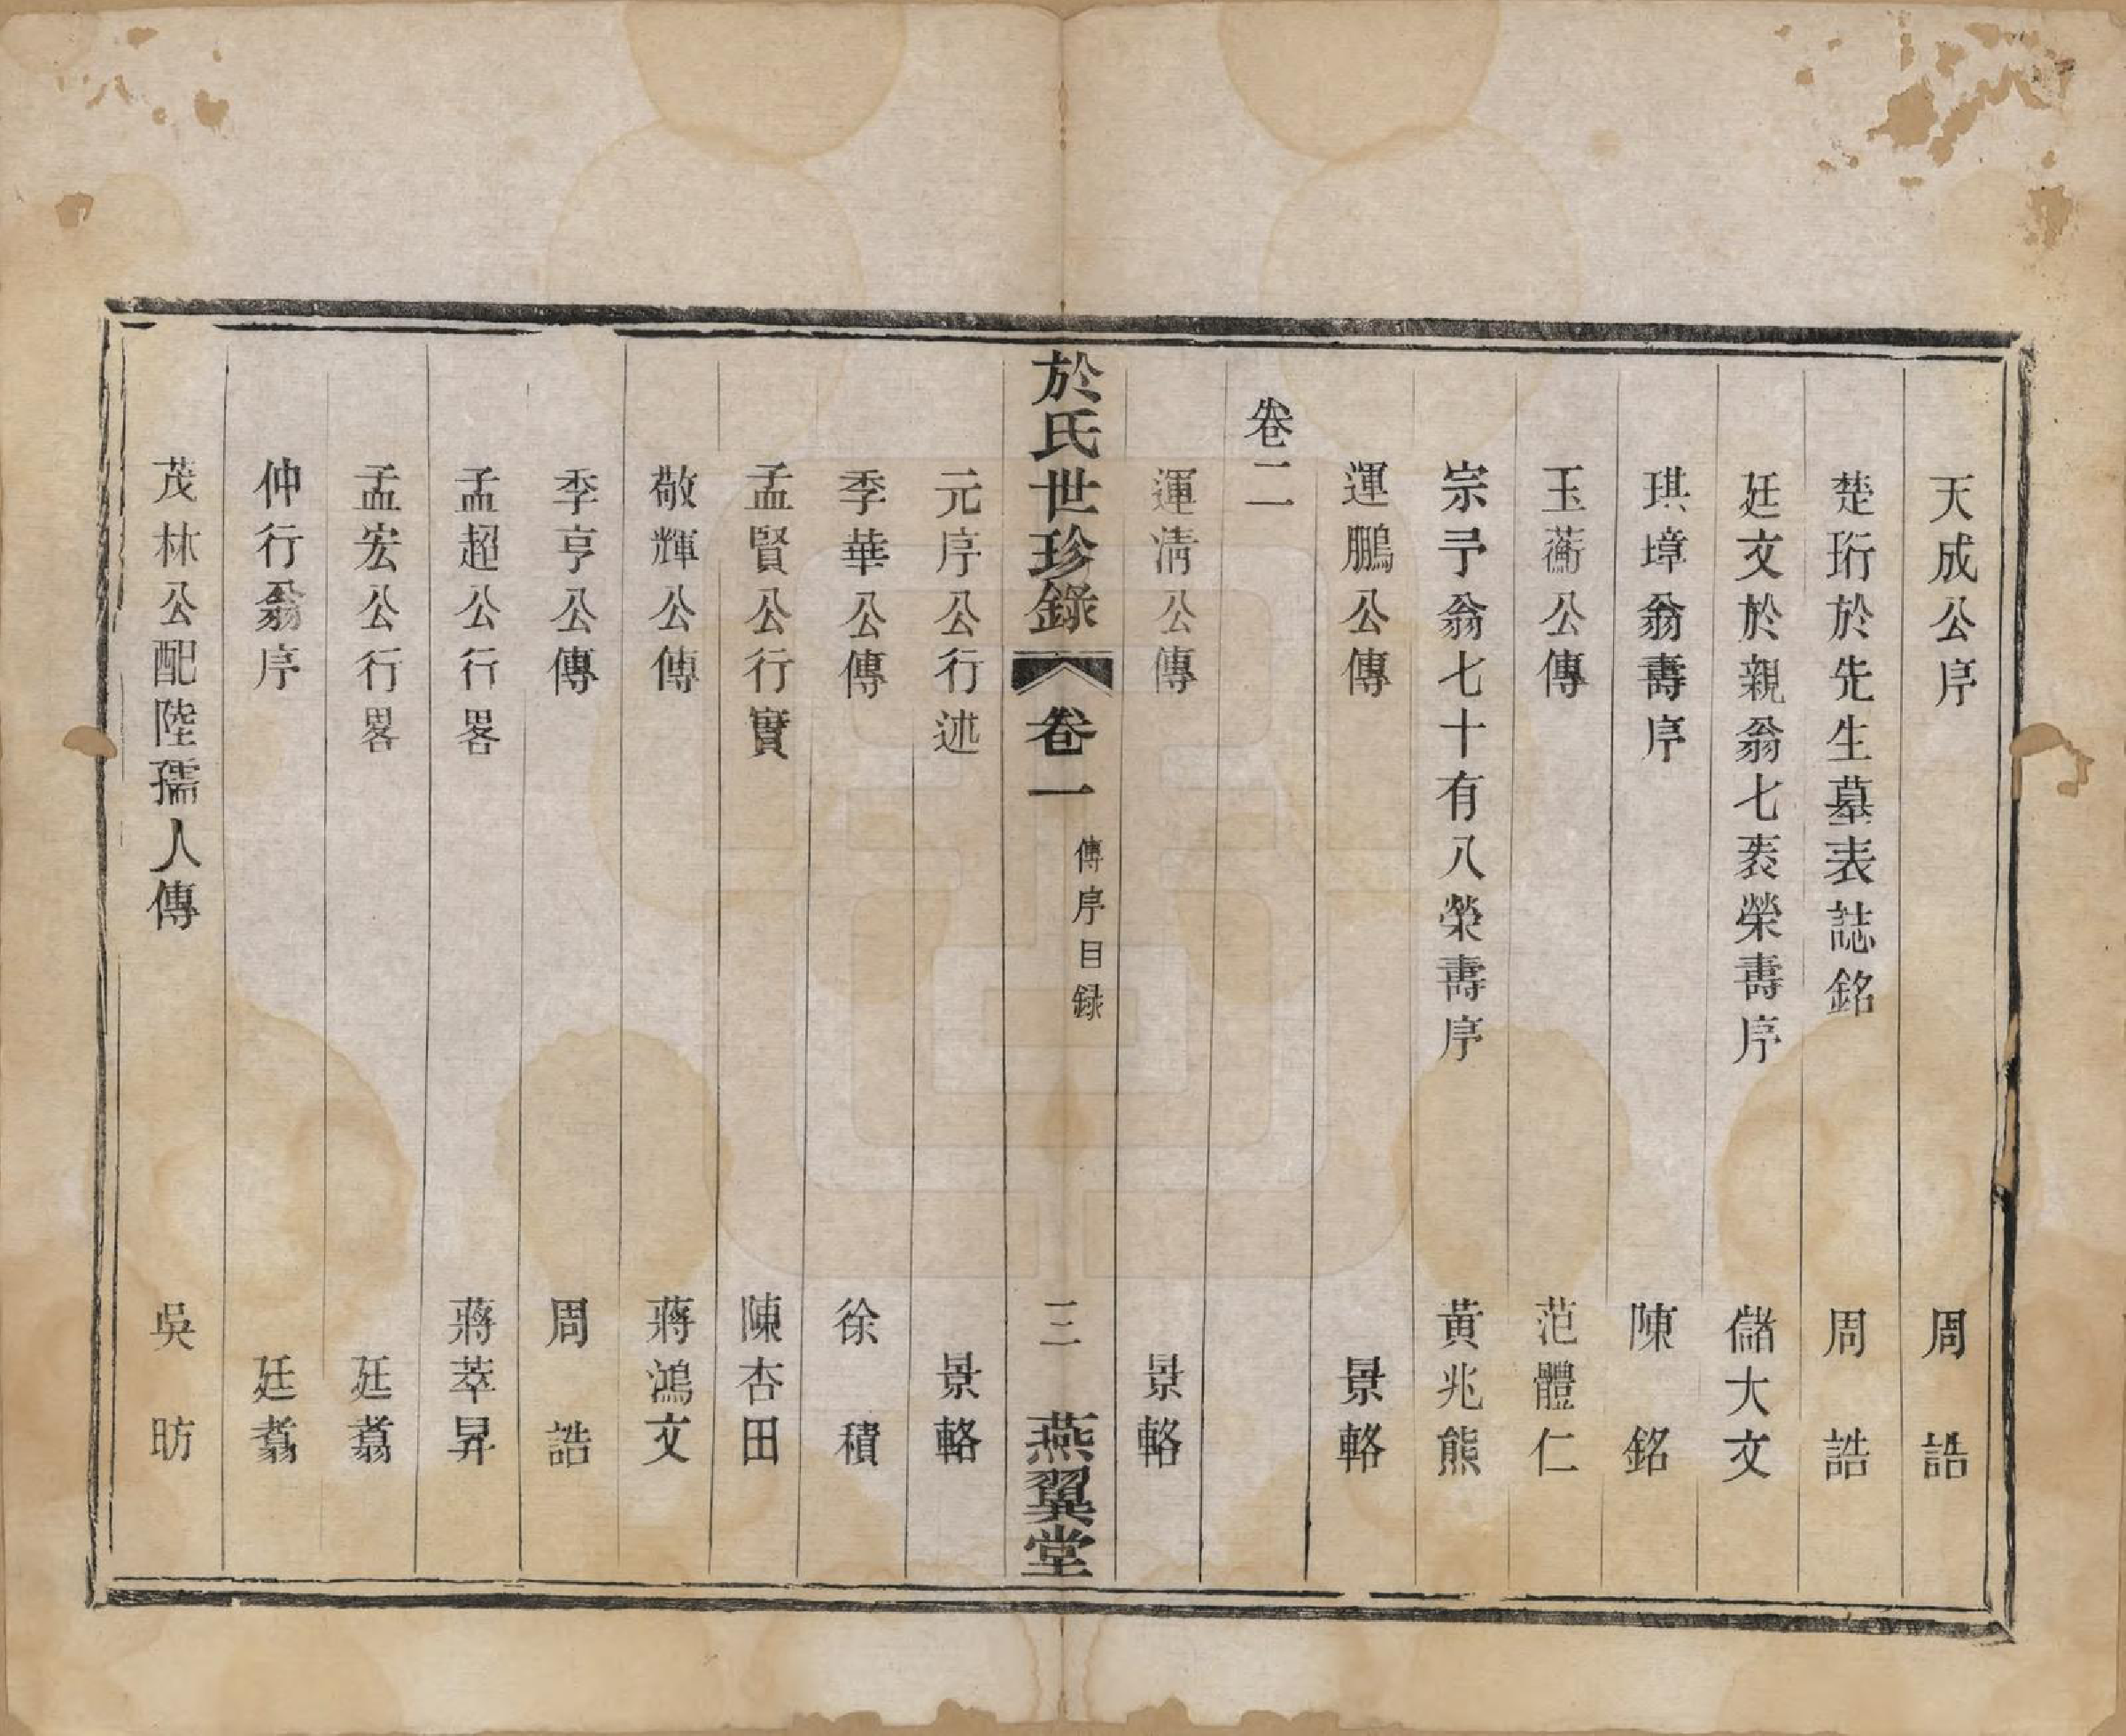 天成公序　周　誥
楚珩於先生墓表誌銘　周　誥
廷文於親翁七袠榮壽序　儲大文
琪墇翁壽序　陳　銘
玉蘅公傳　范體仁
宗予翁七十有八榮壽序　黃兆熊
運鵬公傳　景輅
卷二
運淸公傳　景輅
於氏世珍錄　卷一　傳序目録　三　燕翼堂
元序公行述　景輅
季華公傳　徐　積
孟賢公行實　陳杏田
敬輝公傳　蔣鴻文
季亨公傳　周　誥
孟超公行畧　蔣萃昇
孟宏公行畧　廷翥
仲行翁序　廷翥
茂林公配陸孺人傳　吳　昉